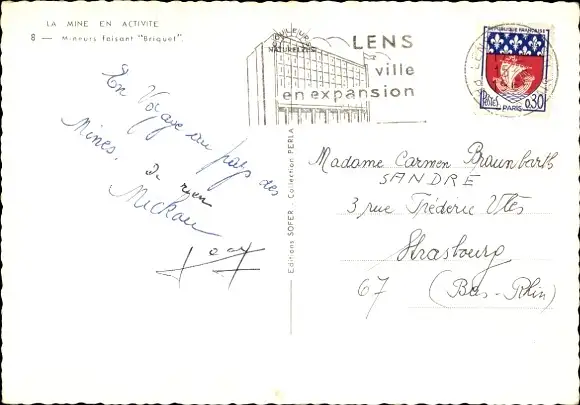 LA MINE EN ACTIVITE
8 — Mineurs faisant "Briquet"
COULEURS
NATURELLES
LENS
ville
en expansion
LENS
REPUBLIQUE FRANÇAISE
POSTES
PARIS
0,30
En Voyage au pays des
Mines.
Mickau
Madame Carmen Braunbarth
SANDRE
3 rue Fréderic
Strasbourg
67 (Bas-Rhin)
Editions SOFER - Collection PERLA